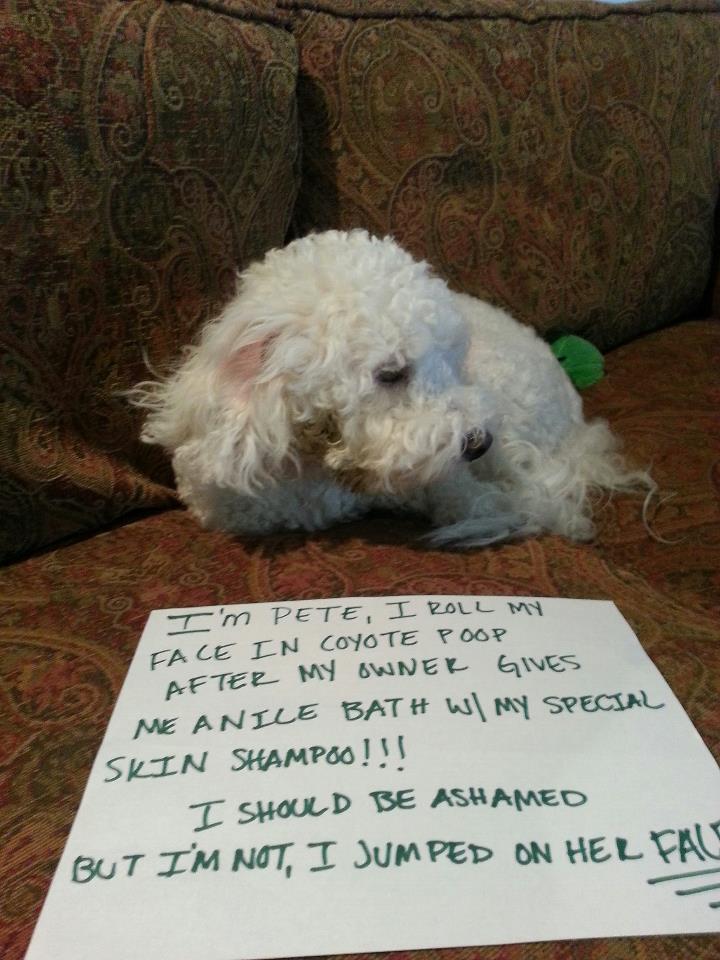 I'm PETE, I ROLL MY
FACE IN COYOTE POOP
AFTER MY OWNER GIVES
ME A NICE BATH W/ MY SPECIAL
SKIN SHAMPOO!!!
I SHOULD BE ASHAMED
BUT I'M NOT, I JUMPED ON HER